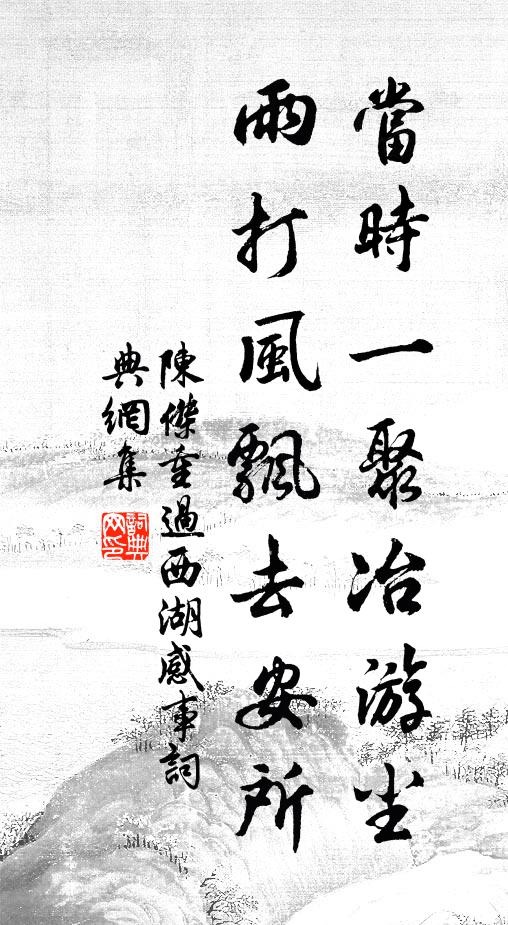 當時一聚冶游尘
雨打風飄去安所
陳傑重過西湖感事詞
典網集
詞典网印